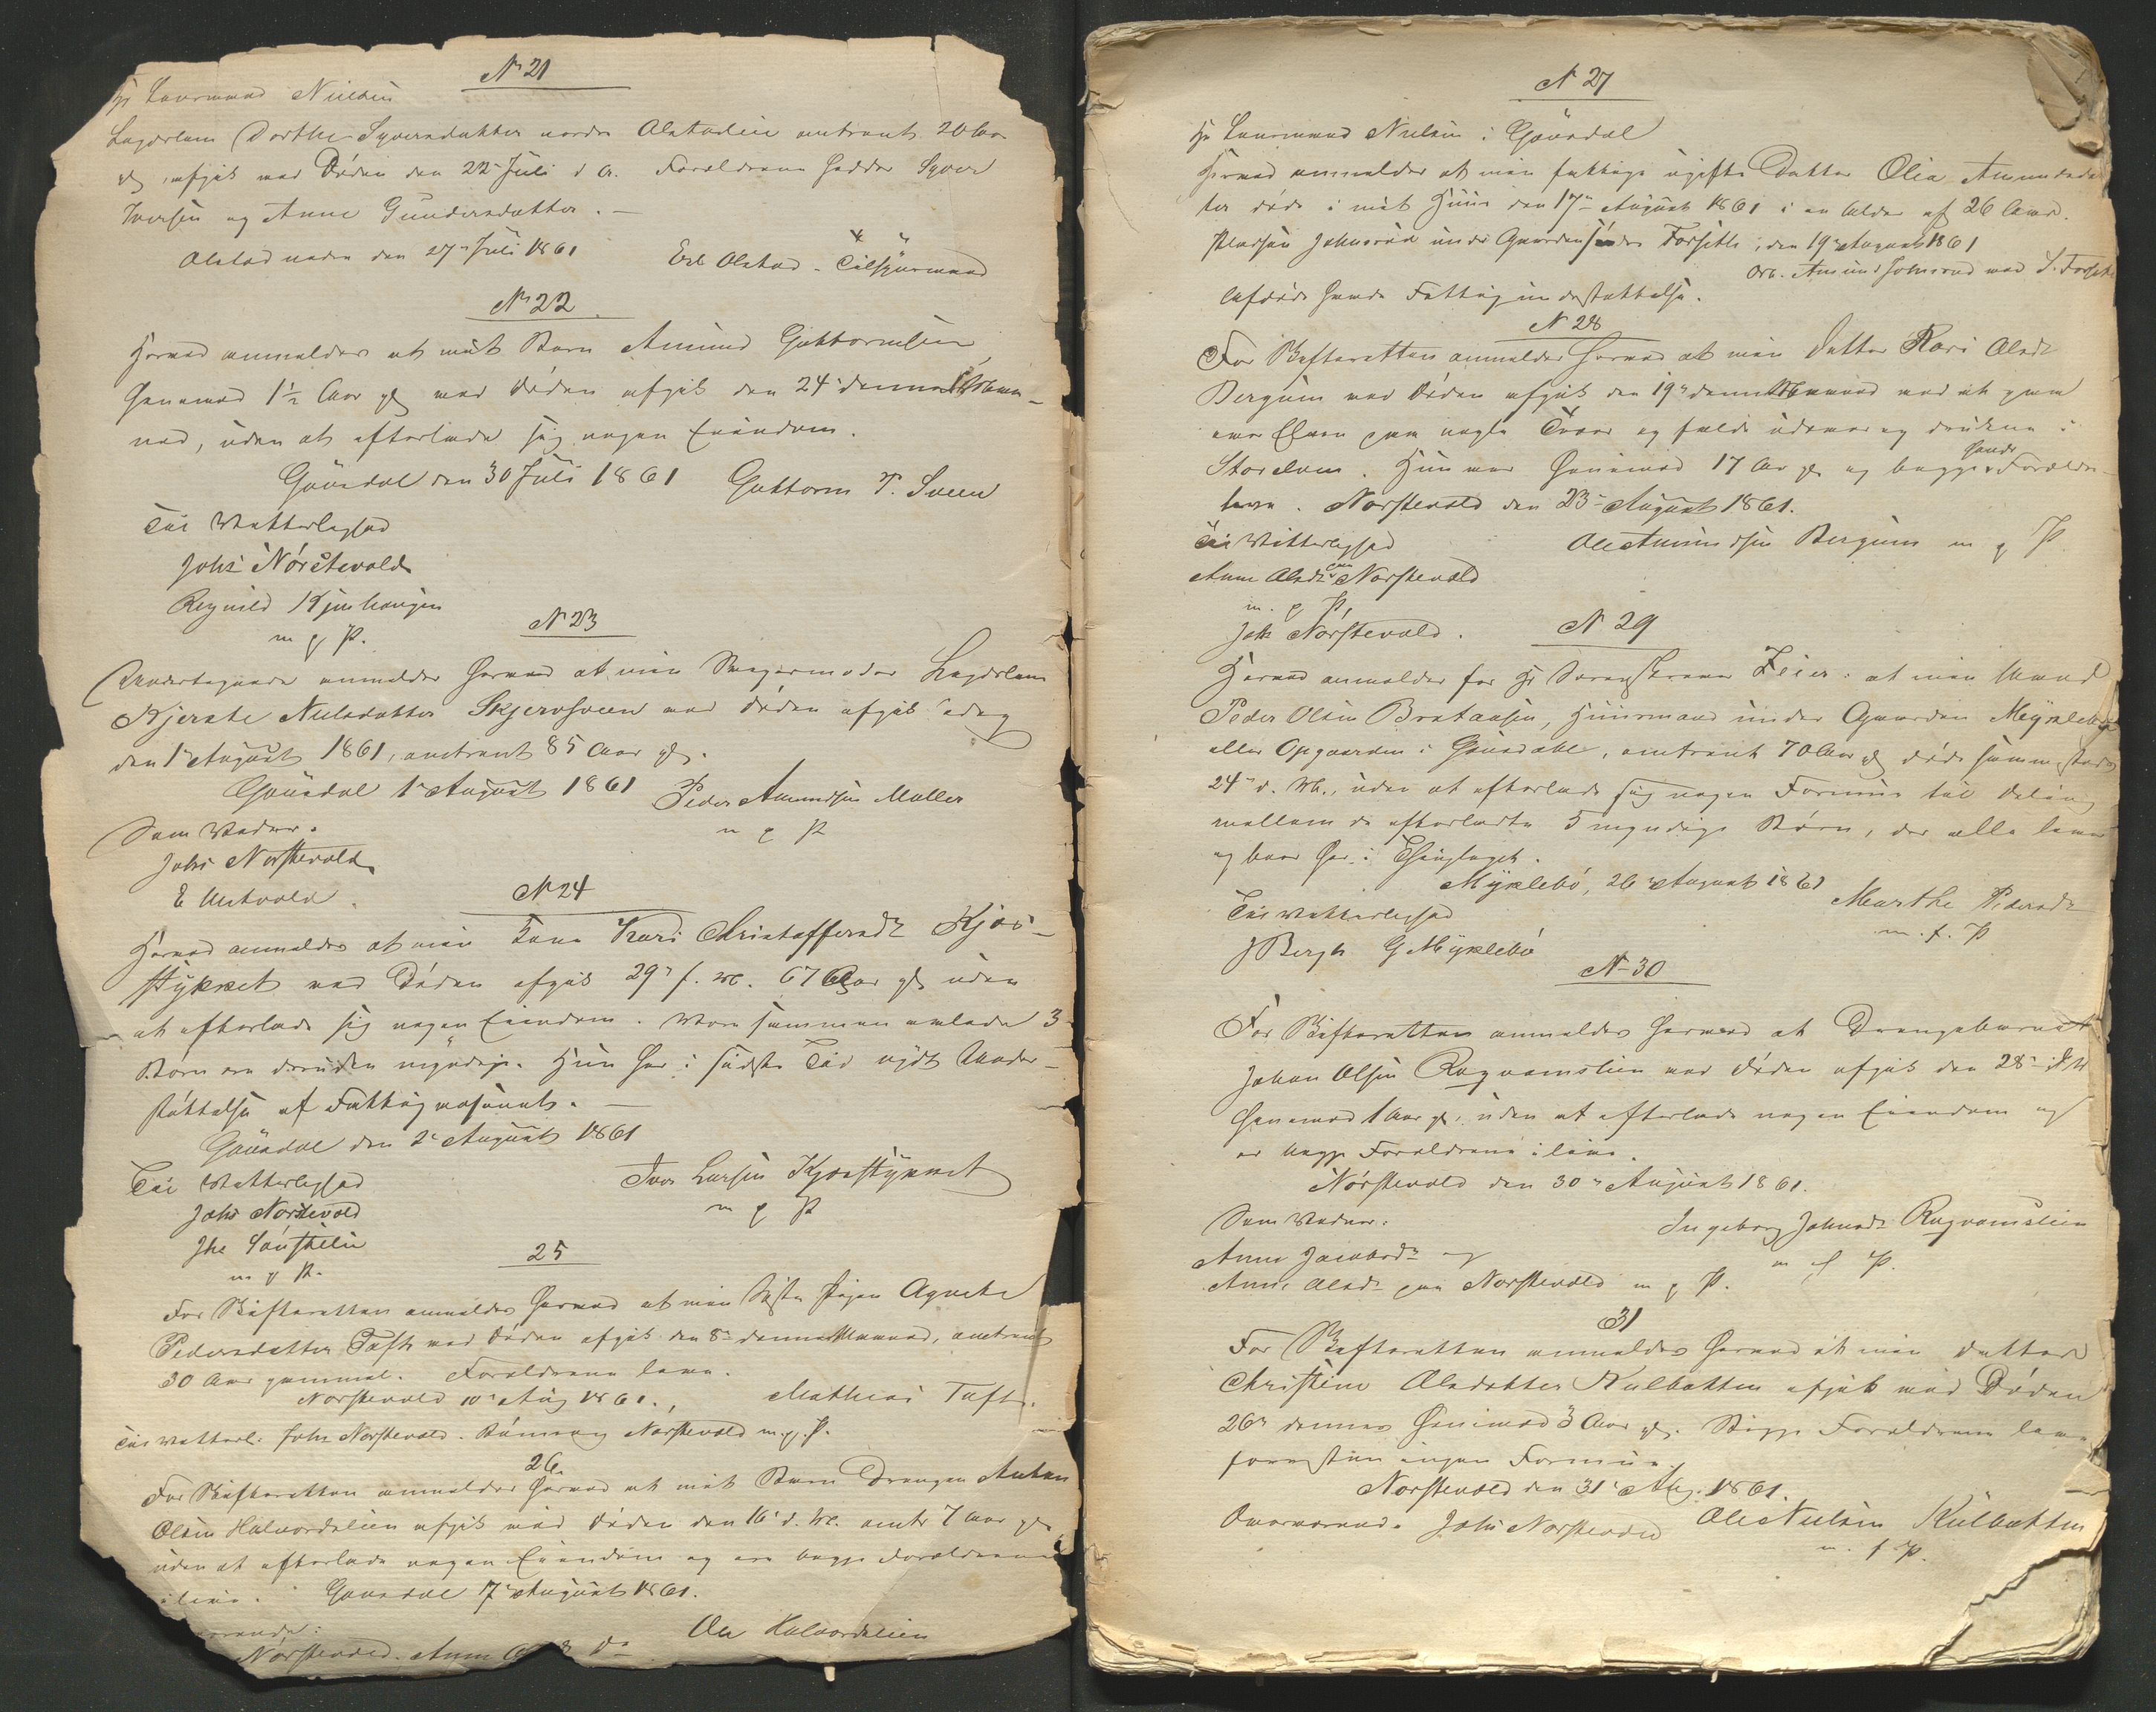 N 21
Hr Lensmand Nielsen
Lægdslem Dorthe Syversdatter nordre Olstadlie omtrent 20 Aar
gl, afgik ved Døden den 22 Juli d A. Forældrene hedder Syver
Iversen og Anne Gundersdatter. —
Olstad nedre den 27 Juli 1861 Erl Olstad - Tilsynsmand
N 22
Herved anmeldes at mit Barn Amund Guttormsen
henimod 1½ Aar gl ved Døden afgik den 24 denne Maa-
ned, uden at efterlade sig nogen Eiendom.
Gausdal den 30 Juli 1861 Guttorm P. Sveen
Til Vitterlighed
Johs Nørstevold
Regnild Kjushaugen
m p P.
N 23
Undertegnede anmelder herved at min Svigermoder Lægdslem
Kjersti Nielsdatter Skjervsveen ved Døden afgik idag
den 1 August 1861, omtrent 85 Aar gl.
Gausdal 1 August 1861 Peder Amundsen Møller
m p P
Som Vidner.
Johs Nørstevold
E Myhrvold
N 24
Herved anmeldes at min Kone Kari Christoffersdr Kjos-
stykket ved Døden afgik 29 f. M. 67 Aar gl uden
at efterlade sig nogen Eiendom. Vore sammen avlede 3
Børn ere desuden myndige. Hun har i sidste Tid nydt Under-
støttelse af Fattigvæsenet. —
Gausdal den 2 August 1861
Til Vitterlighed Iver Larsen Kjosstykket
Johs Nørstevold m p P
Joh
m p P.
25
For Skifteretten anmeldes herved at min Søster Pigen Agnethe
Pedersdatter Tofte ved Døden afgik den 8 denne Maaned, omtrent
30 Aar gammel. Forældrene leve.
Nørstevold 10 Aug 1861. Mathias Tofte.
Til Vitterl. Johs Nørstevold. Rønnaug Nørstevold m. p. P.
26
For Skifteretten anmeldes herved at mit Barn Drengen Anton
Olsen Halvordslien afgik ved Døden den 16 d. M. omtr 7 Aar gl
uden at efterlade nogen Eiendom og ere begge Forældrene
ilive. Gausdal 17 August 1861.
Ole Halvordslien
Nørstevold. Anne
N 27
Hr Lensmand Nielsen i Gausdal
Herved anmeldes at min fattige ugifte Datter Olia Amundsdat
ter døde i mit Huus den 17 August 1861 i en Alder af 26 Aar.
Pladsen Johnsrud under Gaarden søndre Forseth, den 19 August 1861
Arb. Amund Johnsrud ved S. Forseth
Afdøde havde Fattigunderstøttelse.
N 28
For Skifteretten anmeldes herved at min Datter Kari Olsdr
Bergum ved Døden afgik den 19 denne Maaned ved at gaa
over Elven paa nogle Træer og faldt udover og druknede i
Storelven. Hun var henimod 17 Aar gl og begge hendes Forældre
leve. Nørstevold den 23 August 1861.
Til Vitterlighed Ole Amundsen Bergum m p P
Anne Olsdr paa Nørstevold
m. p P.
Joh Nørstevold.
N 29
Herved anmeldes for Hr Sorenskriver Feier: at min Mand
Peder Olsen Brataasen, Huusmand under Gaarden Myklebø
eller Opgaarden i Gausdahl, omtrent 70 Aar gl døde sammesteds
24 d. M., uden at efterlade sig nogen Formue til Deling
mellem de efterladte 5 myndige Børn, der alle leve
og boer her i Thinglaget.
Myklebø, 26 August 1861 Marthe Pedersdr
Til Vitterlighed m. f. P
J Bergh G Myklebø
N 30
For Skifteretten anmeldes herved at Drengebarnet
Johan Olsen Rognamslien ved Døden afgik den 28 d. M
henimod 1 Aar gl, uden at efterlade nogen Eiendom og
er begge Forældrene ilive.
Nørstevold den 30 August 1861.
Som Vidner: Ingeborg Johnsdr Rognamslien
Anne Jacobsdr og m f P.
Anne Olsdr paa Nørstevold m p P.
31
For Skifteretten anmeldes herved at min Datter
Christine Olsdatter Kulbotten afgik ved Døden
26 dennes henimod 3 Aar gl. Begge Forældrene leve
foresten ingen Formue.
Nørstevold den 31 Aug. 1861.
Overværende Johs Nørstevold Ole Nielsen Kulbotten
m. f P.